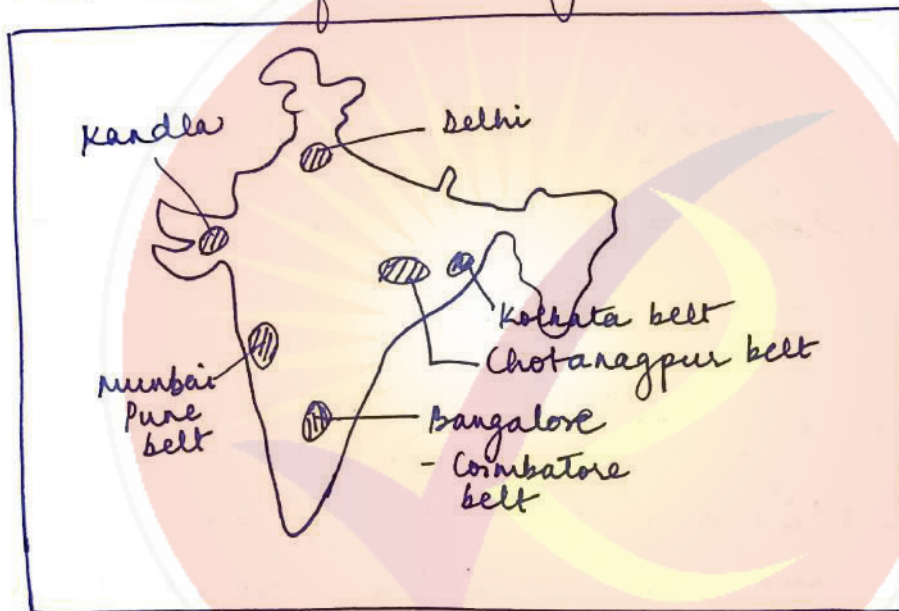 Kandla
Delhi
Kolkata belt
Chotanagpur belt
Mumbai
Pune
belt
Bangalore
- Coimbatore
belt